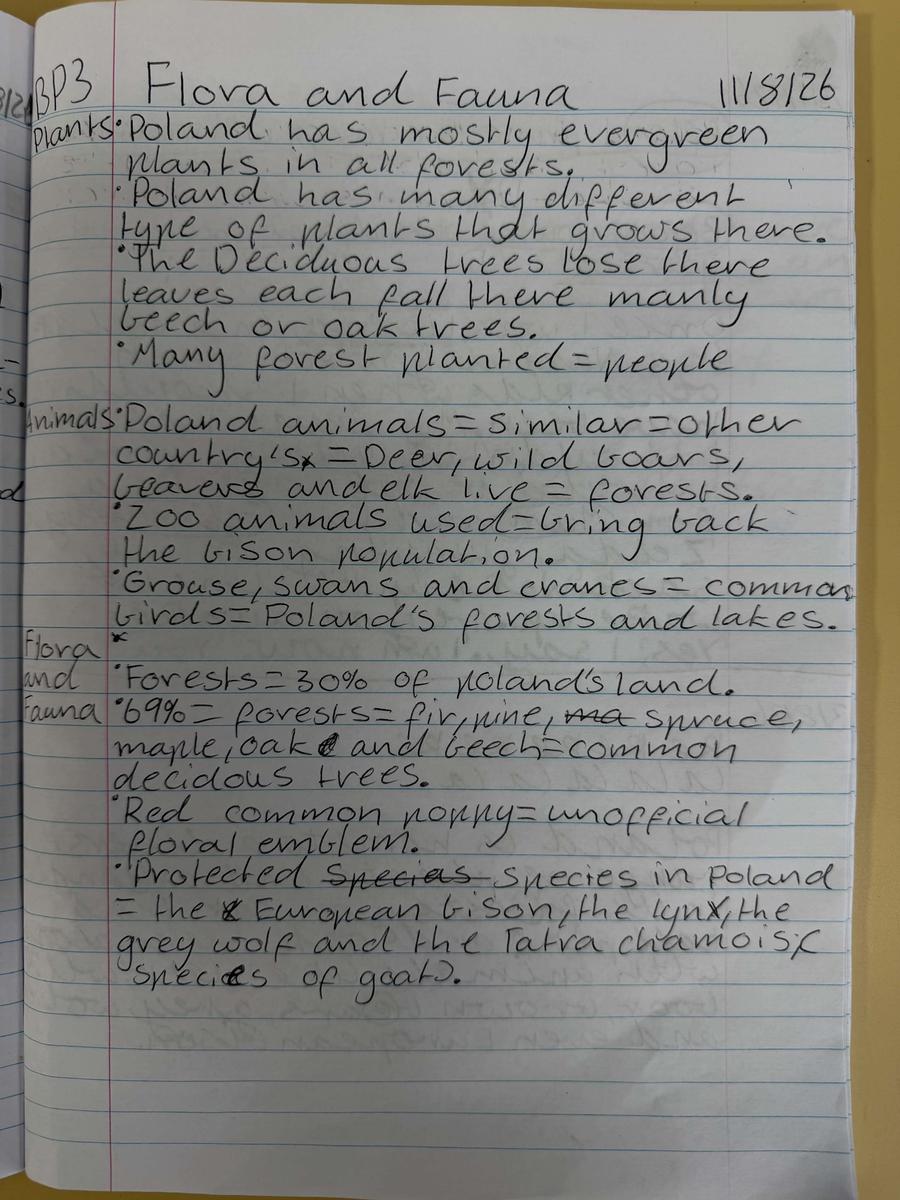 BP3 Flora and Fauna 11/8/26
Plants • Poland has mostly evergreen
plants in all forests.
• Poland has many different
type of plants that grows there.
• The Deciduous trees lose there
leaves each fall there manly
beech or oak trees.
• Many forest planted = people
Animals • Poland animals = similar = other
country's = Deer, wild boars,
beavers and elk live = forests.
• Zoo animals used = bring back
the bison population.
• Grouse, swans and cranes = common
birds = Poland's forests and lakes.
Flora
and • Forests = 30% of poland's land.
Fauna • 69% = forests = fir, pine, ma spruce,
maple, oak and beech = common
decidous trees.
• Red common poppy = unofficial
floral emblem.
• Protected Specias species in Poland
= the European bison, the lynx, the
grey wolf and the Tatra chamois (
species of goat).